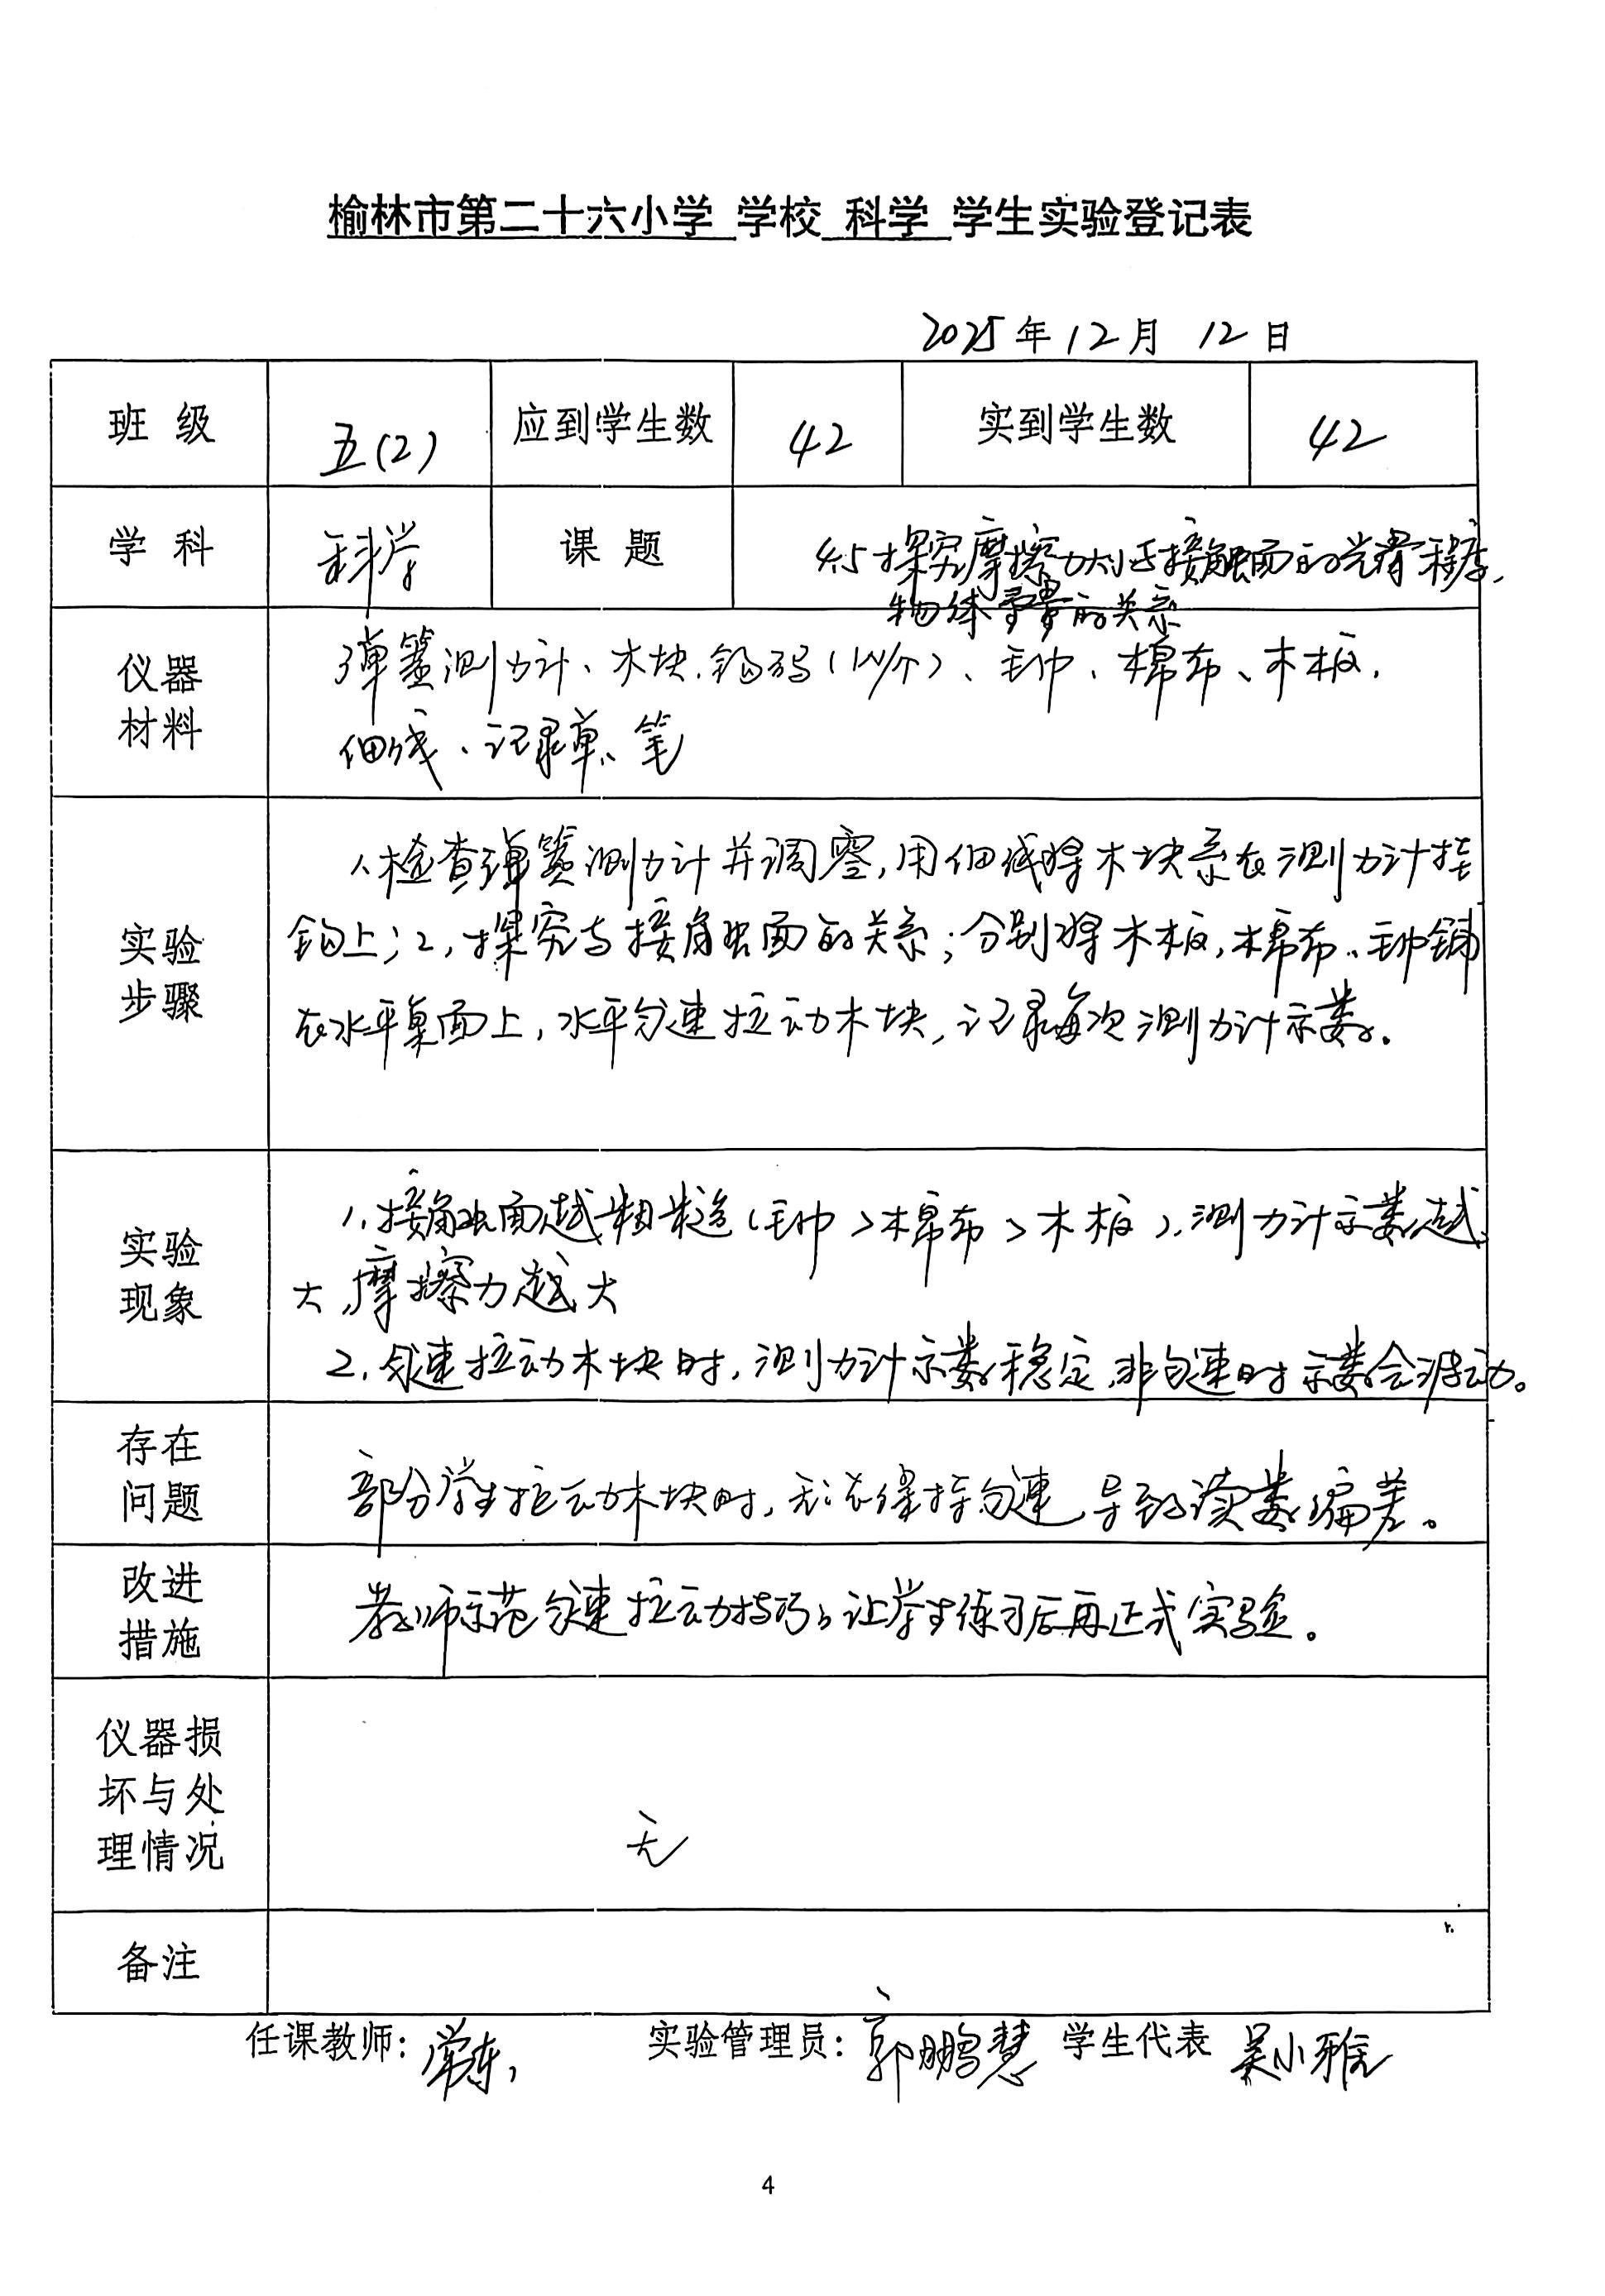 榆林市第二十六小学 学校 科学 学生实验登记表
2025年12月 12日
班 级 五(2) 应到学生数 42 实到学生数 42
学 科 科学 课 题 4.5 探究摩擦力大小与接触面的光滑程度、
物体重量的关系
仪器
材料
弹簧测力计、木块、钩码(1N/个)、毛巾、棉布、木板、
细线、记录单、笔
实验
步骤
1、检查弹簧测力计并调零,用细线将木块系在测力计挂
钩上;2、探究与接触面的关系;分别将木板,棉布、毛巾铺
在水平桌面上,水平匀速拉动木块,记录每次测力计示数。
实验
现象
1、接触面越粗糙(毛巾>棉布>木板),测力计示数越
大,摩擦力越大
2、匀速拉动木块时,测力计示数稳定,非匀速时示数会波动。
存在
问题
部分学生拉动木块时,无法保持匀速,导致读数偏差。
改进
措施
教师示范匀速拉动技巧,让学生练习后再正式实验。
仪器损
坏与处
理情况
无
备注
任课教师: 实验管理员:郭鹏慧 学生代表 吴小雅
4